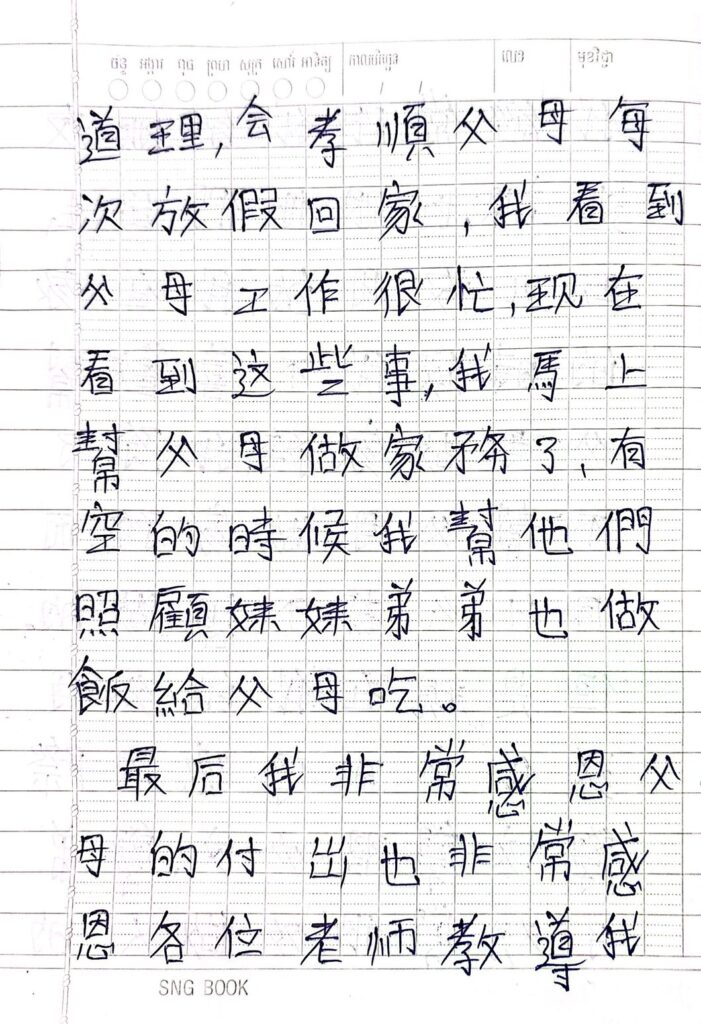 ចន្ទ អង្គារ ពុធ ព្រហ សុក្រ សៅរ៍ អាទិត្យ កាលបរិច្ឆេទ / / លេខ មុខវិជ្ជា
道理,会孝順父母每
次放假回家,我看到
父母工作很忙,现在
看到这些事,我馬上
幫父母做家務了,有
空的時候我幫他們
照顧妹妹弟弟也做
飯給父母吃。
最后我非常感恩父
母的付出也非常感
恩各位老师教導我
SNG BOOK